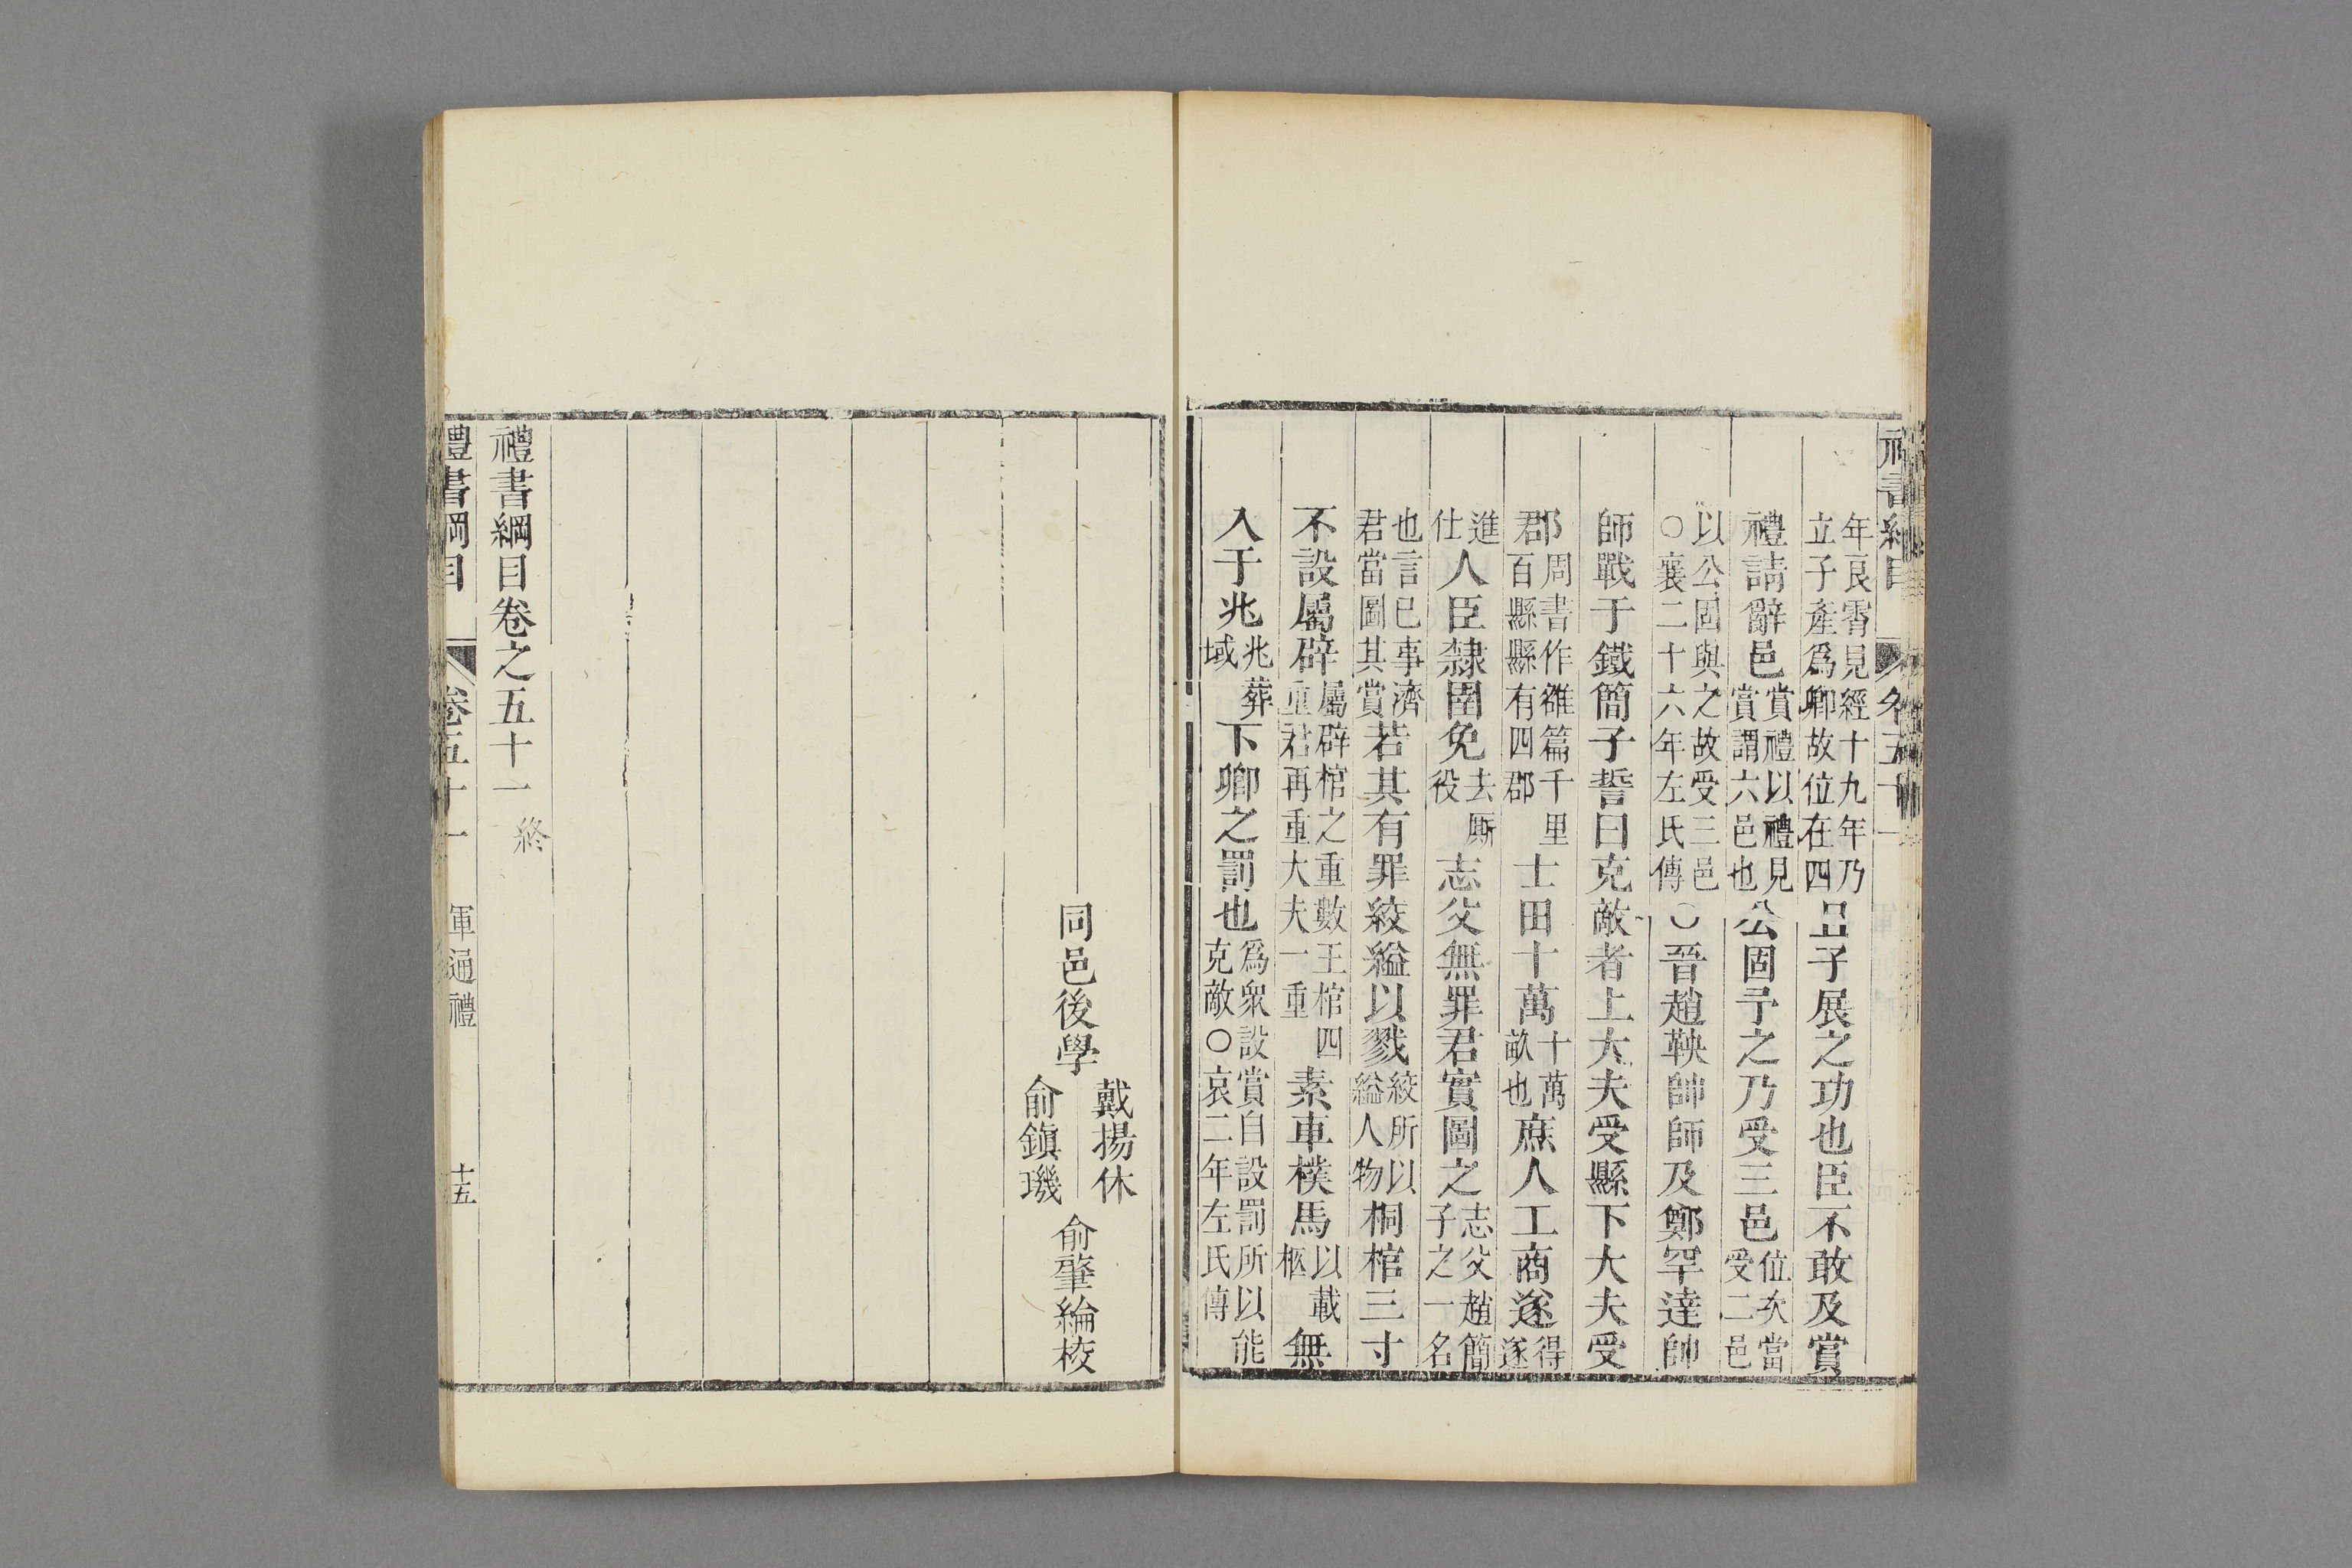 禮書綱目 卷五十一
年良霄見經十九年乃立子產爲卿故位在四且子展之功也臣不敢及賞
禮請辭邑賞禮以禮見賞謂六邑也公固予之乃受三邑位次當受二邑
以公固與之故受三邑○襄二十六年左氏傳○晉趙鞅帥師及鄭罕達帥
師戰于鐵簡子誓曰克敵者上大夫受縣下大夫受
郡周書作雒篇千里百縣縣有四郡士田十萬十萬畝也庶人工商遂得遂
進仕人臣隸圉免去厮役志父無罪君實圖之志父趙簡子之一名
也言已事濟君當圖其賞若其有罪絞縊以戮絞所以縊人物桐棺三寸
不設屬辟屬辟棺之重數王棺四重君再重大夫一重素車樸馬以載柩無
入于兆兆葬域下卿之罰也爲衆設賞自設罰所以能克敵○哀二年左氏傳
同邑後學戴揚休俞鎮璣俞肇綸校
禮書綱目卷之五十一終
禮書綱目 卷五十一 軍通禮 十五